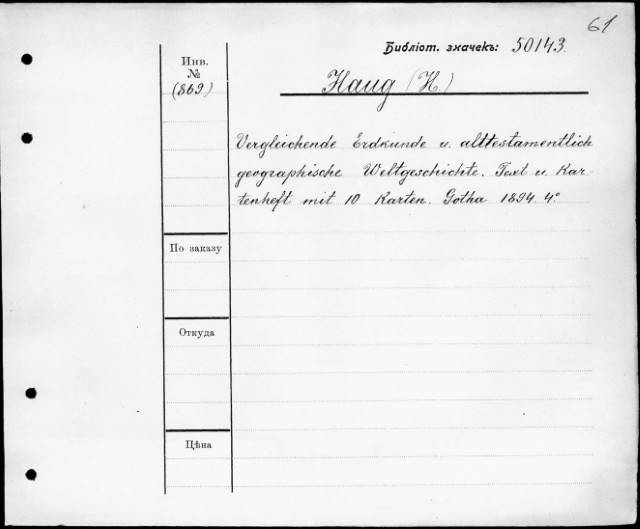 61
Библіот. значекъ: 50143.
Инв.
№
(869)
Haug (H.)
Vergleichende Erdkunde u. alttestamentlich
geographische Weltgeschichte. Text u. Kar-
tenheft mit 10 Karten. Gotha 1894. 4°
По заказу
Откуда
Цѣна